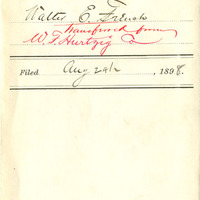 Walter E. French
Transferred from
W. F. Hurtzig
Filed Aug 29th, 1898.